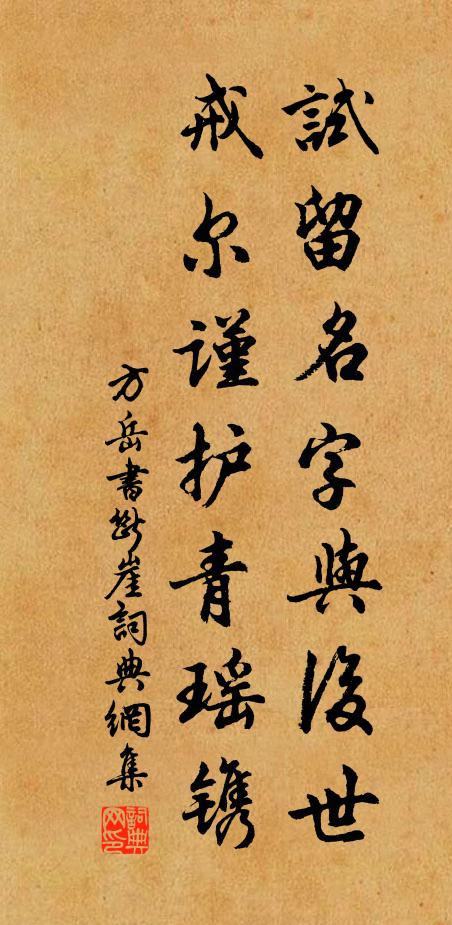 試留名字與後世
戒尔谨护青瑶镌
方岳書断崖詞典網集
詞典网印